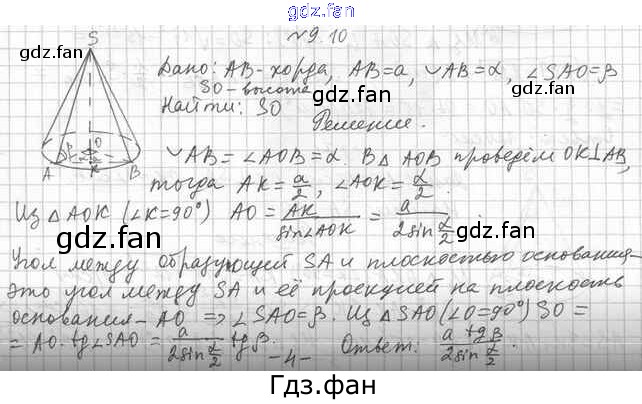 gdz.fan
№9.10
S
gdz.fan
Дано: AB-хорда, AB=a, ◡AB=α, ∠SAO=β
SO-высота
gdz.fan
Найти: SO
gdz.fan
Решение.
O
β
A K B
◡AB=∠AOB=α. В △AOB проведём OK⊥AB,
тогда AK=a/2, ∠AOK=α/2.
Из △AOK (∠K=90°) AO=AK/sin∠AOK=a/2sin α/2.
gdz.fan
gdz.fan
Угол между образующей SA и плоскостью основания-
это угол между SA и её проекцией на плоскость
основания-AO ⇒∠SAO=β. Из △SAO(∠O=90°) SO=
=AO·tg∠SAO=a/2sin α/2 tgβ. Ответ: a tgβ/2sin α/2.
-4-
Гдз.фан